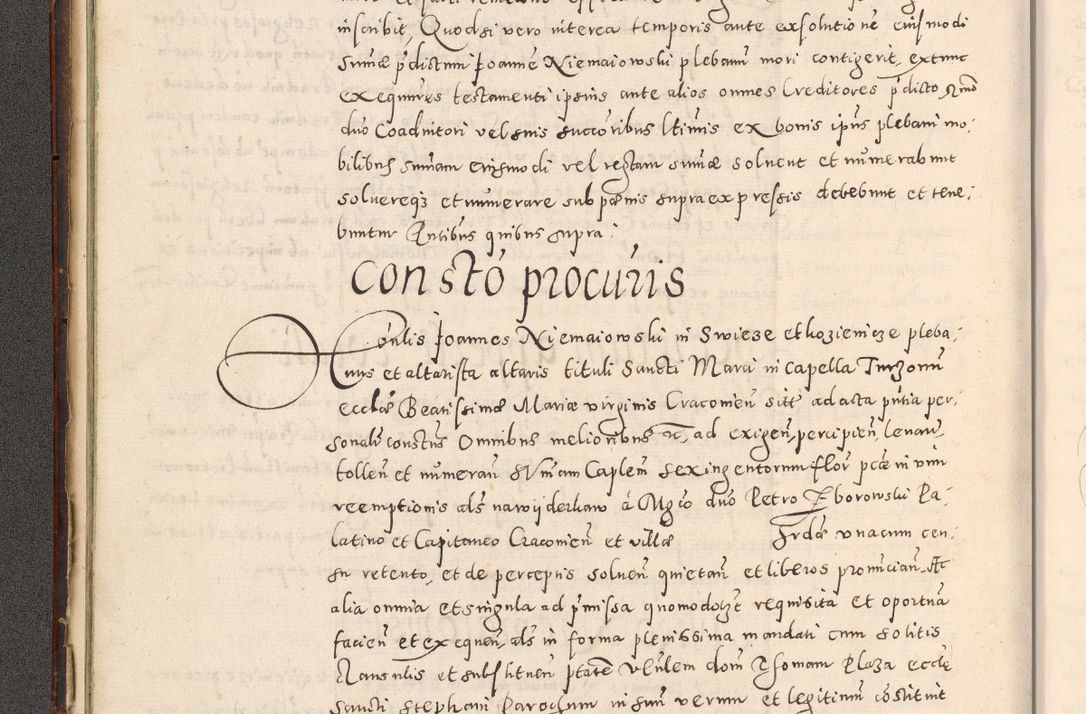 inscribit, Quod si vero interea temporis ante exsolutionē eiusmodi
Sumæ p̄dictum Joannē Niemaiowski plebanū mori contigerit, extunc
exequutores testamenti ipsius ante alios omnes Creditores p̄dicto
duō Coadiutori vel suis succōribus ltimis ex bonis ipūs plebani mo:
bilibus sumam eiusmodi vel restam sumæ solvent et nūmerabunt
solvereqȝ et numerare sub pœnis supra expressis debebunt et tene:
buntur Testibus quibus supra.
Constō procūris
Conūlis Joannes Niemaiowski in Swiese et kozienicze pleba:
nus et altarista altaris tituli Sancti Marci in capella Turzonū
ecclæ Beatissimæ Mariæ virginis Cracovień sitē ad acta pn̄tia per:
sonalr constūs Omnibus melioribus ꝛc̄, ad exigeń, percipień, levań,
tolleń et nūmerań sūmam Caplem̄ sexingentorum flōr pcæ in vim
reemptionis als nawijderkaw à Mgco dūo Petro Zborowski Pa:
latino et Capitaneo Cracovień et villæ Jrdæ unacum cen:
su retento, et de perceptis solveń quietań et liberos pronūciań. Ac
alia omnia et singula ad p̄missa quomodolȝt requisita et oportuna
facień et exequeń, als in forma plenissima mandati cum solitis
Clausulis et substitueń ptatē Vēnlem dom̄ Thomam Plaza eccle
Sancti Stephani Parochum in suū verum et legitimū cōstituit